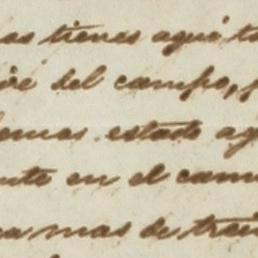 as tienes aqui to
ire del campo, p
hemos estado ag
nte en el cam
ra mas de trein